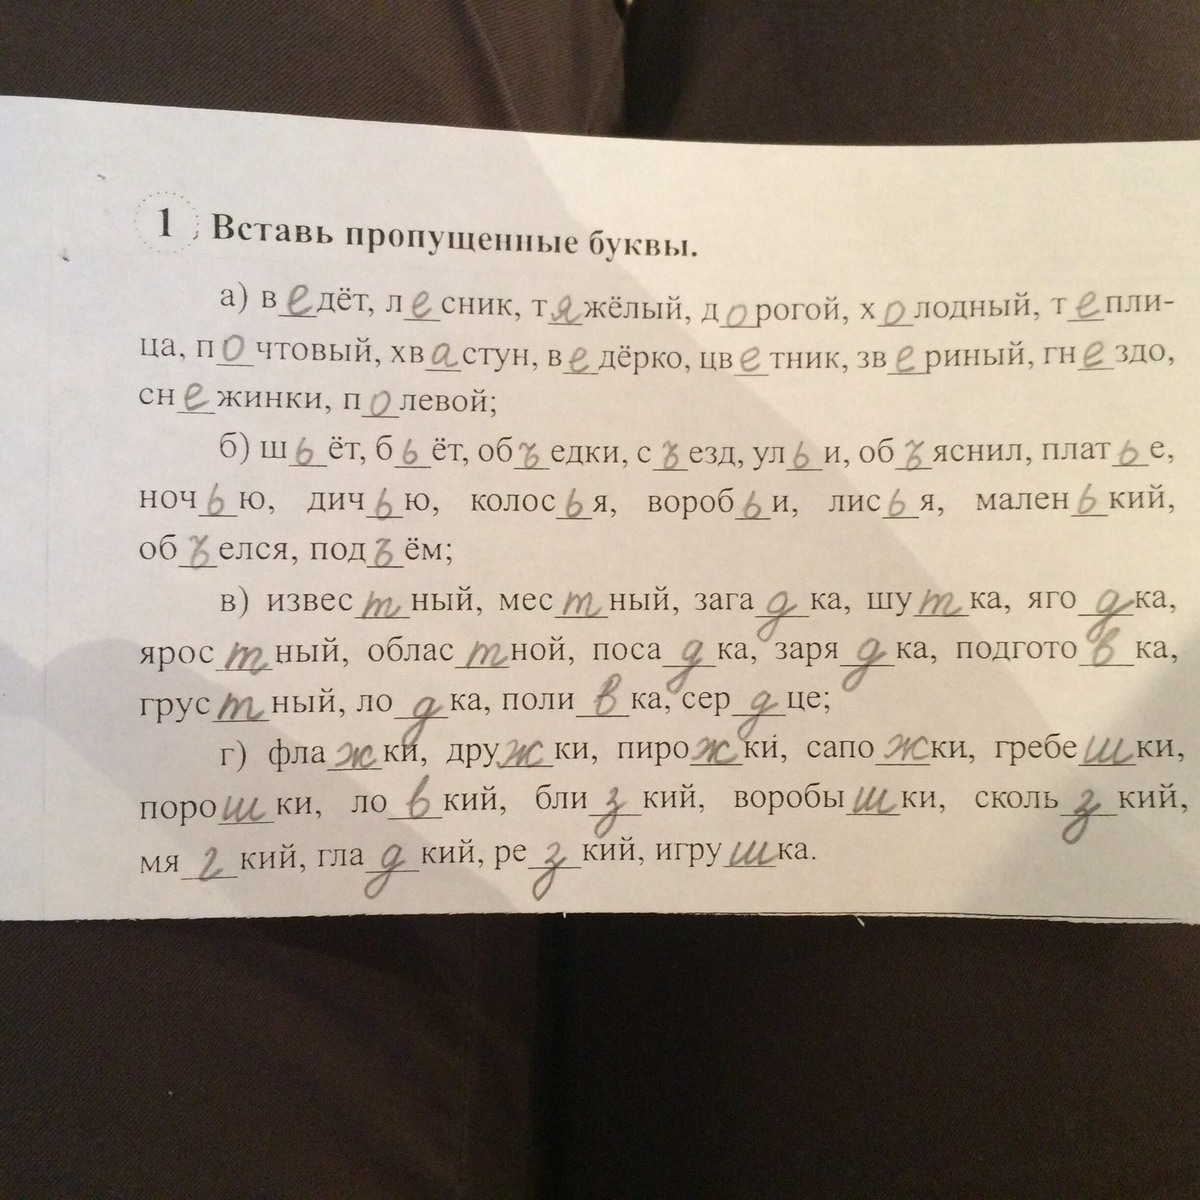 1 Вставь пропущенные буквы.
а) ведёт, лесник, тяжёлый, дорогой, холодный, тепли-
ца, почтовый, хвастун, ведёрко, цветник, звериный, гнездо,
снежинки, полевой;
б) шьёт, бьёт, объедки, съезд, ульи, объяснил, платье,
ночью, дичью, колосья, воробьи, лисья, маленький,
объелся, подъём;
в) известный, местный, загадка, шутка, ягодка,
яростный, областной, посадка, зарядка, подготовка,
грустный, лодка, поливка, сердце;
г) флажки, дружки, пирожки, сапожки, гребешки,
порошки, ловкий, близкий, воробышки, скользкий,
мягкий, гладкий, резкий, игрушка.